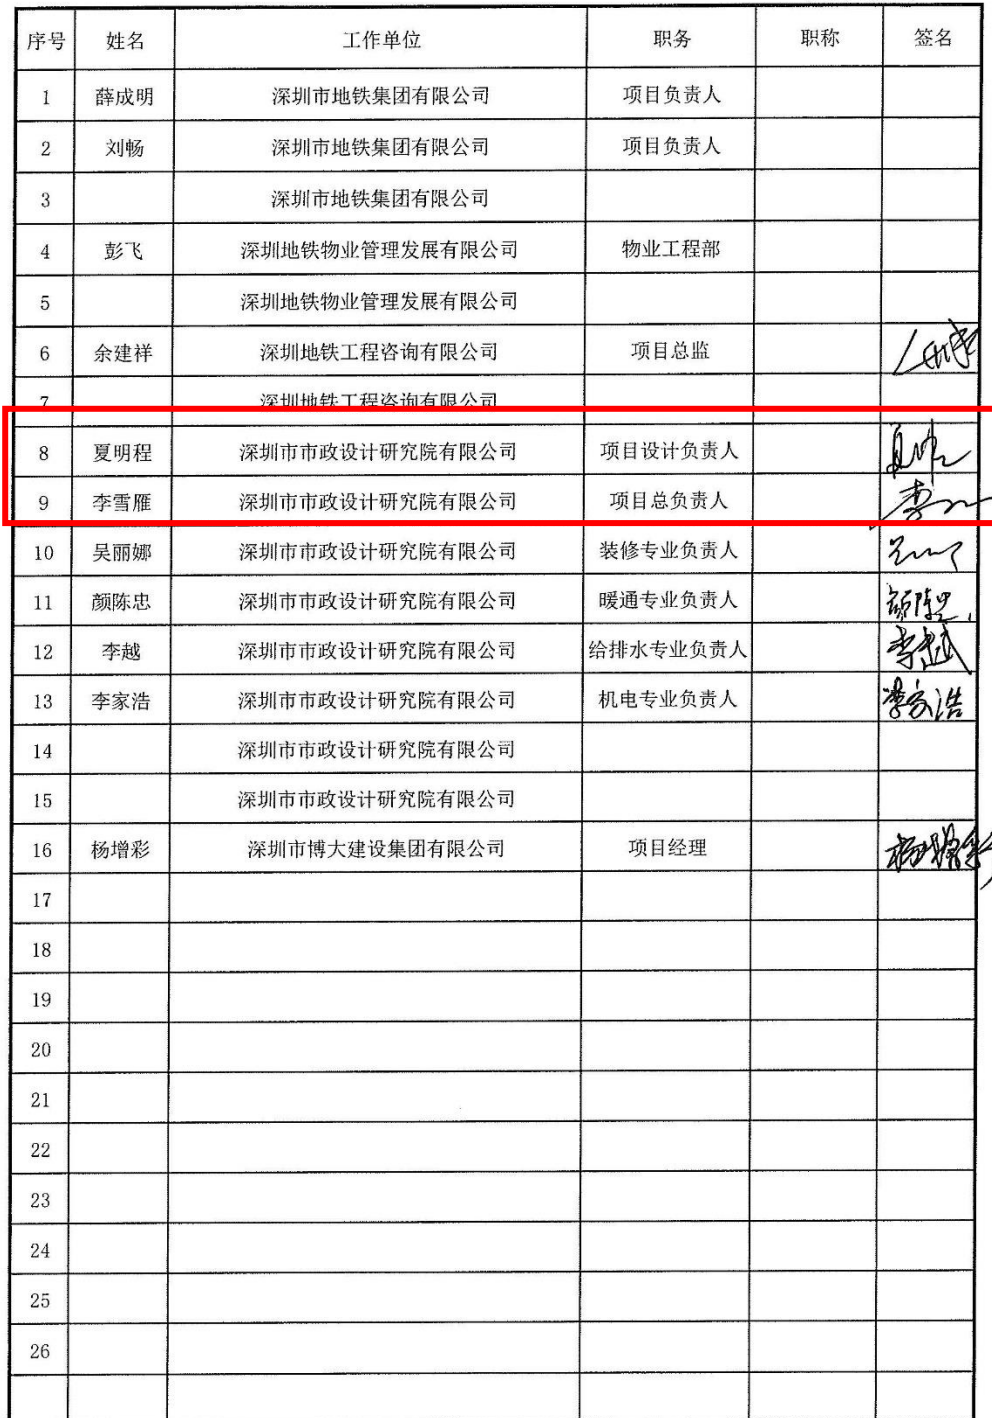 序号 姓名 工作单位 职务 职称 签名
1 薛成明 深圳市地铁集团有限公司 项目负责人
2 刘畅 深圳市地铁集团有限公司 项目负责人
3 深圳市地铁集团有限公司
4 彭飞 深圳地铁物业管理发展有限公司 物业工程部
5 深圳地铁物业管理发展有限公司
6 余建祥 深圳地铁工程咨询有限公司 项目总监
7 深圳地铁工程咨询有限公司
8 夏明程 深圳市市政设计研究院有限公司 项目设计负责人
9 李雪雁 深圳市市政设计研究院有限公司 项目总负责人
10 吴丽娜 深圳市市政设计研究院有限公司 装修专业负责人
11 颜陈忠 深圳市市政设计研究院有限公司 暖通专业负责人 颜陈忠
12 李越 深圳市市政设计研究院有限公司 给排水专业负责人 李越
13 李家浩 深圳市市政设计研究院有限公司 机电专业负责人 李家浩
14 深圳市市政设计研究院有限公司
15 深圳市市政设计研究院有限公司
16 杨增彩 深圳市博大建设集团有限公司 项目经理 杨增彩
17
18
19
20
21
22
23
24
25
26